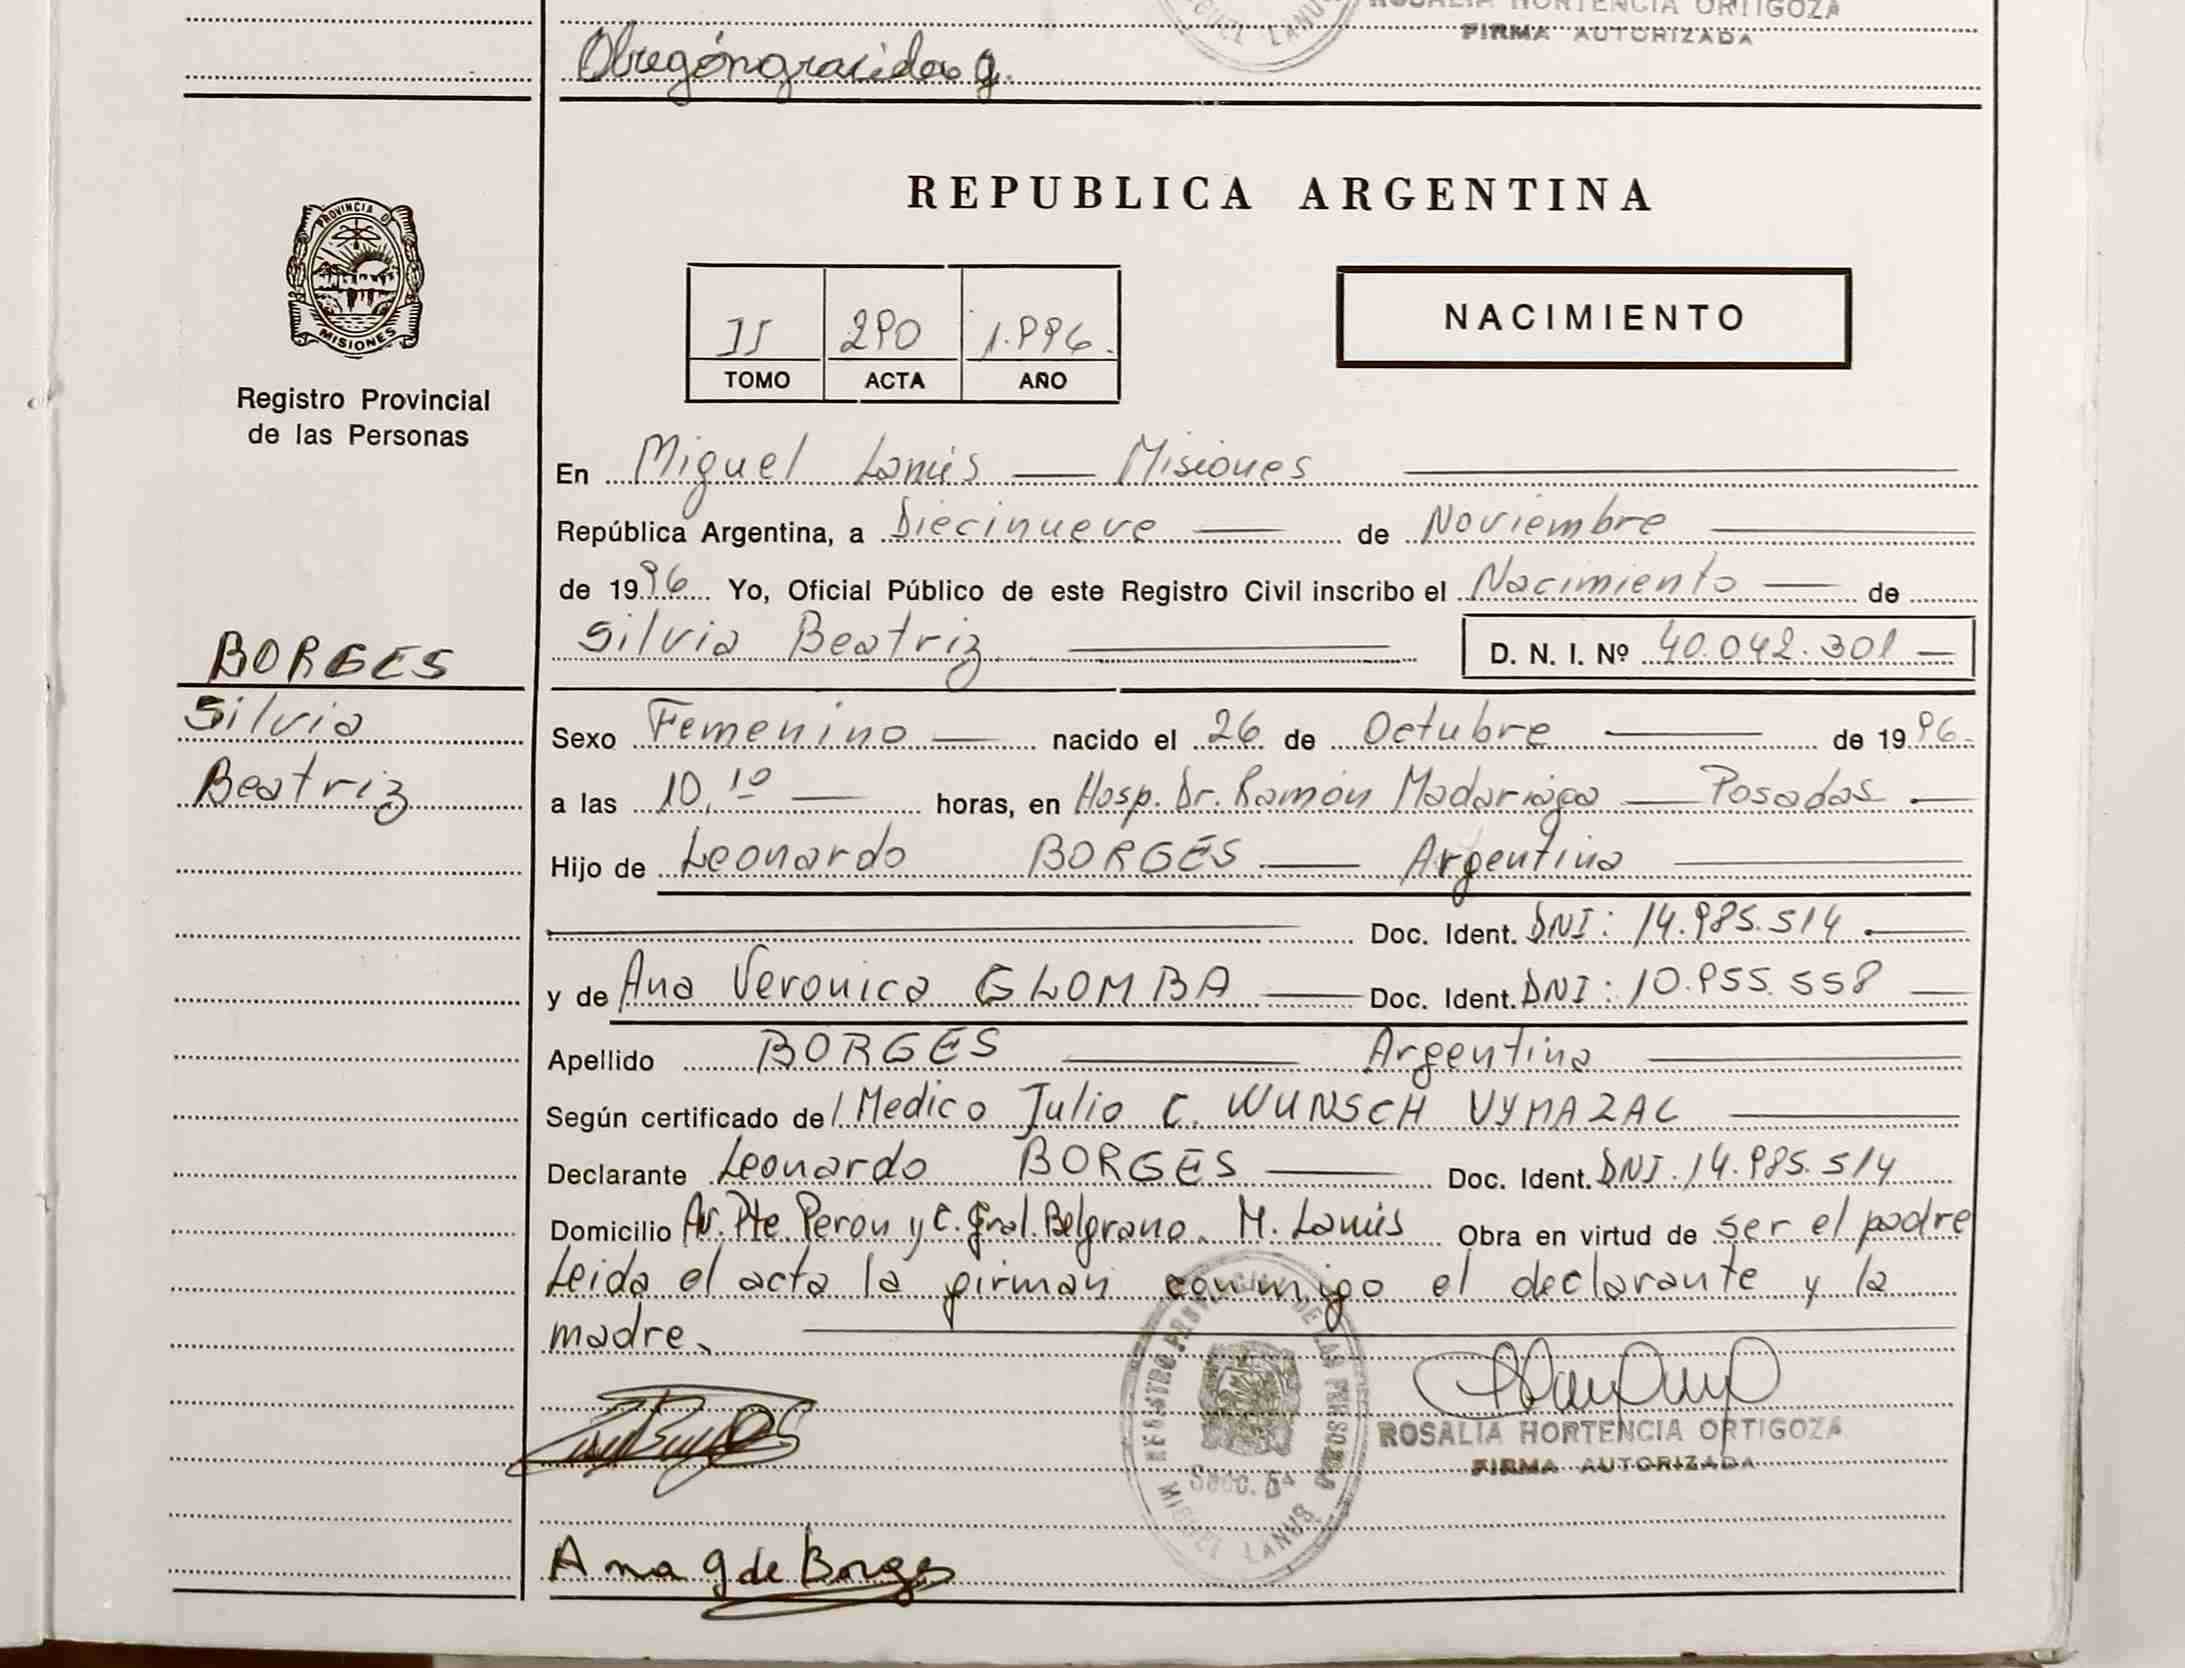 ROSALIA HORTENCIA ORTIGOZA
FIRMA AUTORIZADA
MIGUEL LANUS
REPUBLICA ARGENTINA
PROVINCIA DE
MISIONES
Registro Provincial
de las Personas
II 290 1.996.
TOMO ACTA AÑO
NACIMIENTO
En Miguel Lanús — Misiones
República Argentina, a Diecinueve — de Noviembre
de 1996 Yo, Oficial Público de este Registro Civil inscribo el Nacimiento — de
Silvia Beatriz — D. N. I. Nº 40.042.301 —
BORGES
Silvia
Beatriz
Sexo Femenino — nacido el 26 de Octubre — de 1996.
a las 10,10 — horas, en Hosp. Dr. Ramón Madariaga — Posadas —
Hijo de Leonardo BORGES — Argentina
Doc. Ident. DNI: 14.985.514
y de Ana Veronica GLOMBA — Doc. Ident. DNI: 10.955.558 —
Apellido BORGES — Argentina
Según certificado del Medico Julio C. WUNSCH VYMAZAL
Declarante Leonardo BORGES — Doc. Ident. DNI. 14.985.514
Domicilio Av. Pte Peron y C. Gral. Belgrano. M. Lanús Obra en virtud de ser el padre
Leida el acta la firman conmigo el declarante y la
madre.
REGISTRO PROVINCIAL DE LAS PERSONAS
Secc. 5ª
MIGUEL LANUS
ROSALIA HORTENCIA ORTIGOZA
FIRMA AUTORIZADA
Ana G de Borges